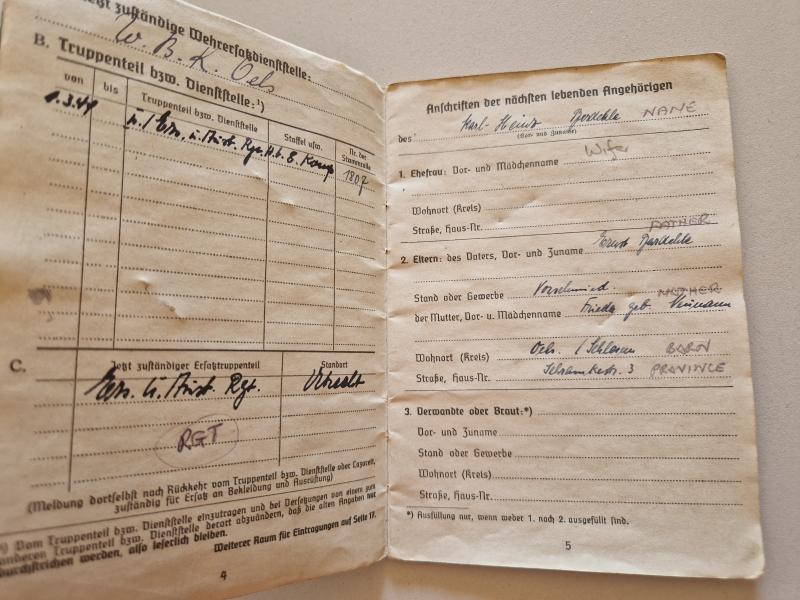 Jetzt zuständige Wehrersatzdienststelle:
W. B. K. Oels
B. Truppenteil bzw. Dienststelle:¹)
von bis Truppenteil bzw. Dienststelle Staffel usw. Nr. der Stammrolle
1.3.44 Rgt. H. G. 8. Komp 1807
C. Jetzt zuständiger Ersatztruppenteil Standort
Ers. u. Ausb. Rgt. Utrecht
RGT
(Meldung dortselbst nach Rückkehr vom Truppenteil bzw. Dienststelle oder Lazarett,
zuständig für Ersatz an Bekleidung und Ausrüstung)
¹) Vom Truppenteil bzw. Dienststelle einzutragen und bei Versetzungen von einem zum
anderen Truppenteil bzw. Dienststelle derart abzuändern, daß die alten Angaben nur
durchstrichen werden, also leserlich bleiben.
Weiterer Raum für Eintragungen auf Seite 17.
4
Anschriften der nächsten lebenden Angehörigen
des Karl-Heinz NANE
(Vor- und Zuname)
Wife
1. Ehefrau: Vor- und Mädchenname
Wohnort (Kreis)
Straße, Haus-Nr.
FATHER
2. Eltern: des Vaters, Vor- und Zuname Ernst
Stand oder Gewerbe Vorschmied
MOTHER
der Mutter, Vor- u. Mädchenname Frieda geb. Neumann
Wohnort (Kreis) Oels /Schlesien BORN
Straße, Haus-Nr. 3 PROVINCE
3. Verwandte oder Braut:*)
Vor- und Zuname
Stand oder Gewerbe
Wohnort (Kreis)
Straße, Haus-Nr.
*) Ausfüllung nur, wenn weder 1. nach 2. ausgefüllt sind.
5